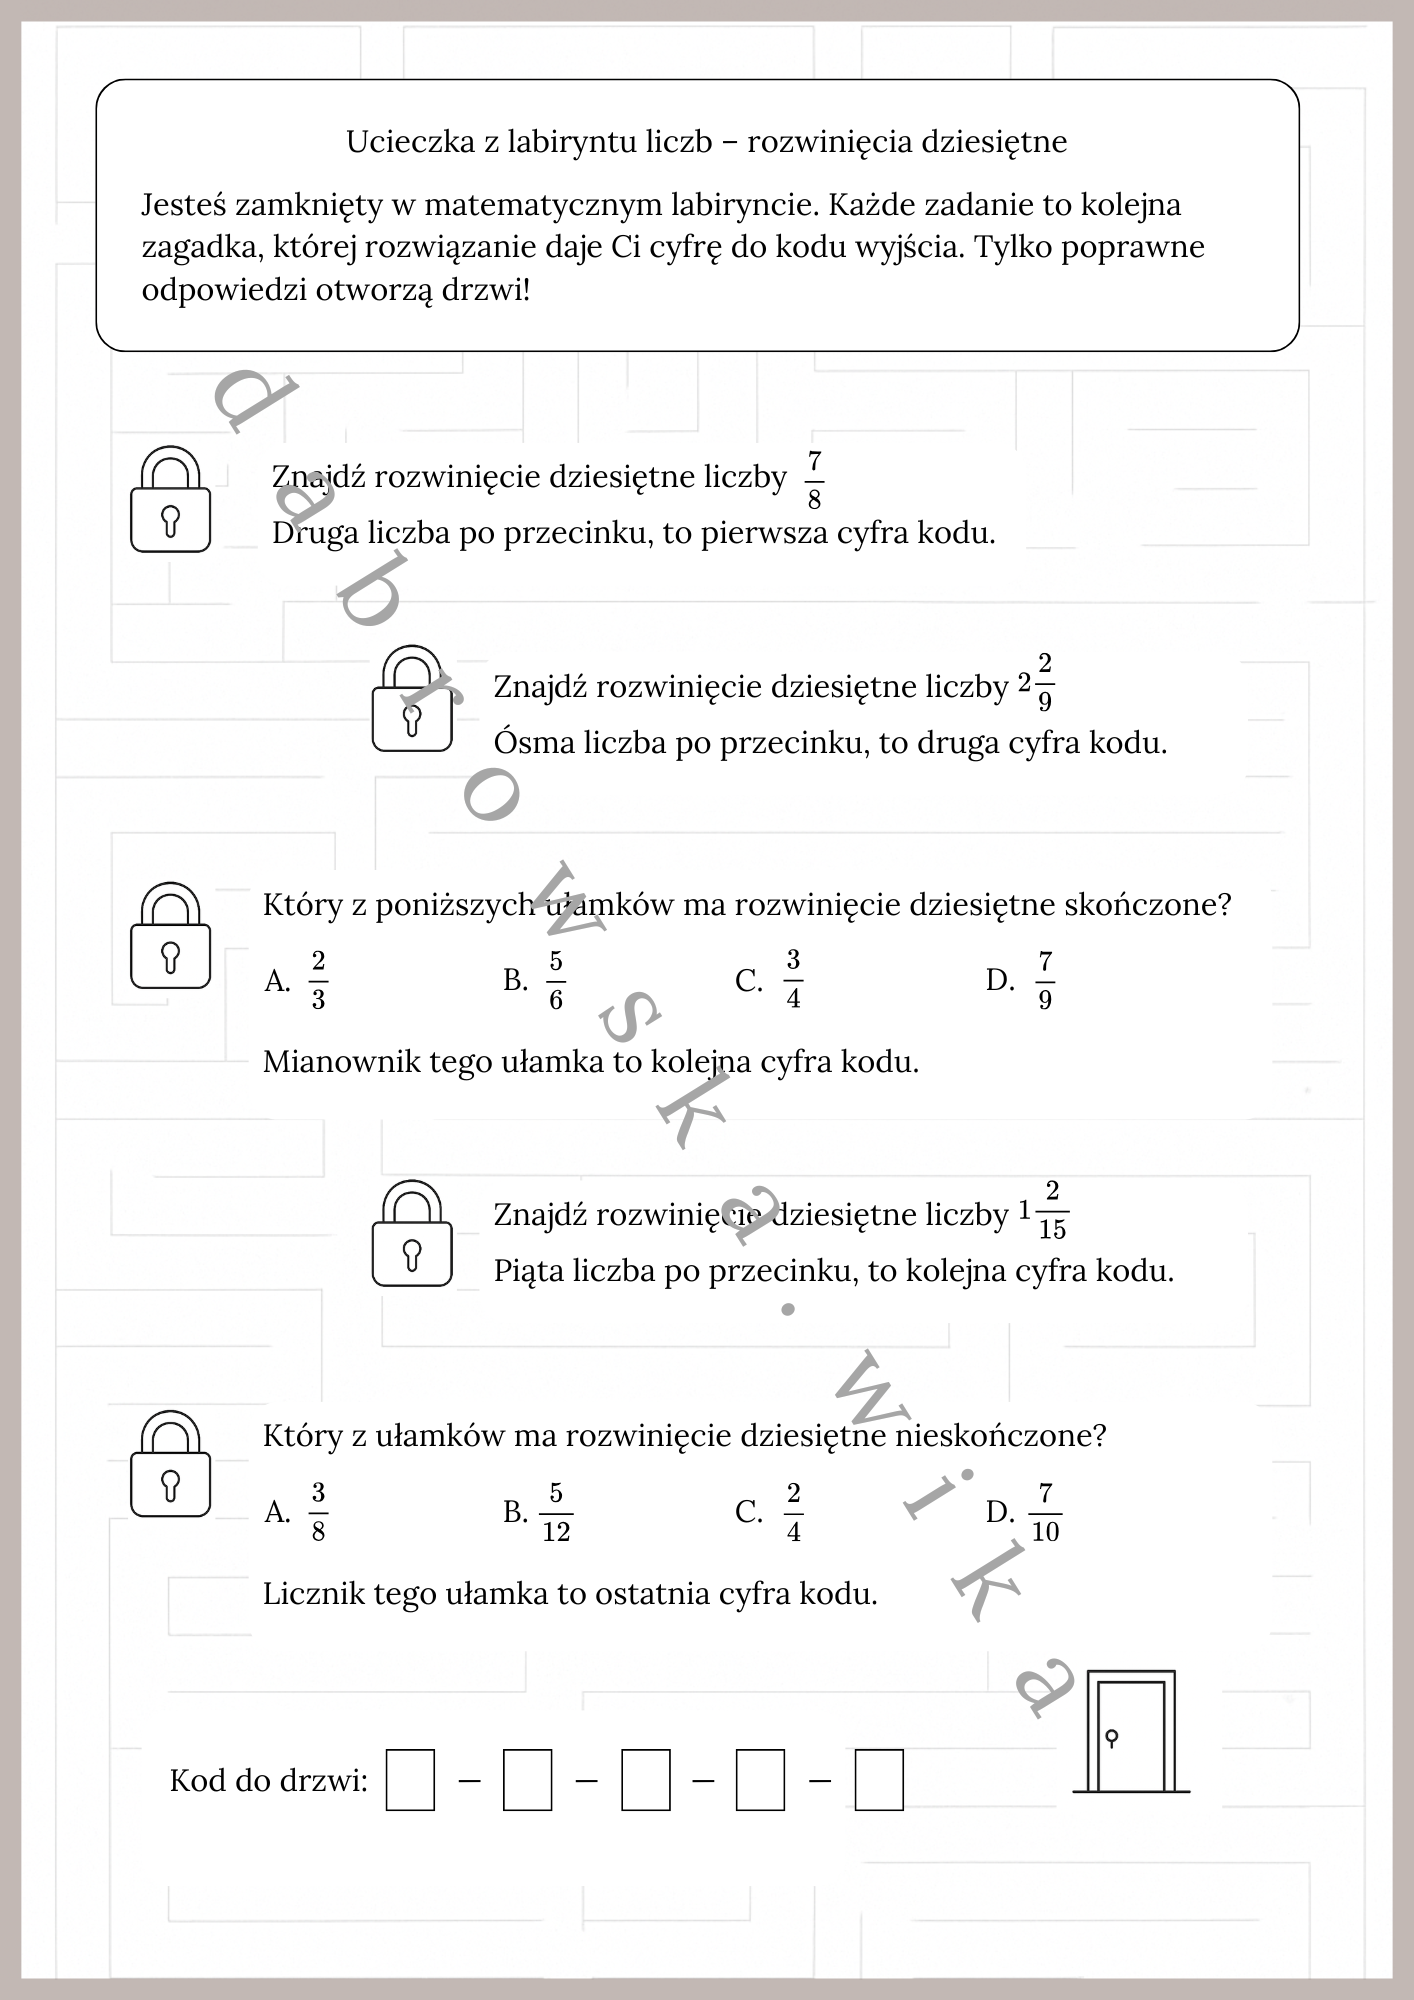 Ucieczka z labiryntu liczb – rozwinięcia dziesiętne
Jesteś zamknięty w matematycznym labiryncie. Każde zadanie to kolejna
zagadka, której rozwiązanie daje Ci cyfrę do kodu wyjścia. Tylko poprawne
odpowiedzi otworzą drzwi!
Znajdź rozwinięcie dziesiętne liczby 7/8
Druga liczba po przecinku, to pierwsza cyfra kodu.
Znajdź rozwinięcie dziesiętne liczby 2 2/9
Ósma liczba po przecinku, to druga cyfra kodu.
Który z poniższych ułamków ma rozwinięcie dziesiętne skończone?
A. 2/3 B. 5/6 C. 3/4 D. 7/9
Mianownik tego ułamka to kolejna cyfra kodu.
Znajdź rozwinięcie dziesiętne liczby 1 2/15
Piąta liczba po przecinku, to kolejna cyfra kodu.
Który z ułamków ma rozwinięcie dziesiętne nieskończone?
A. 3/8 B. 5/12 C. 2/4 D. 7/10
Licznik tego ułamka to ostatnia cyfra kodu.
Kod do drzwi: – – – –
dabrowska.wika